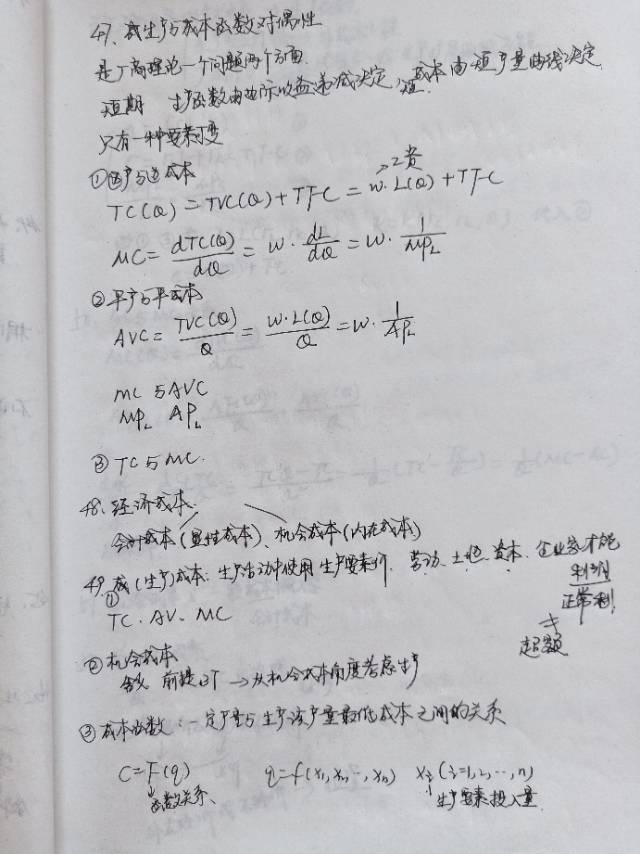 47、成生产与成本函数对偶性
是厂商理论一个问题两个方面
短期 生产函数由边际收益递减决定,短成本由短产量曲线决定
只有一种要素可变
①总产与总成本
→工资
TC(Q)=TVC(Q)+TFC=w·L(Q)+TFC
MC=dTC(Q)/dQ=w·dL/dQ=w·1/MP_L
②平产与平成本
AVC=TVC(Q)/Q=w·L(Q)/Q=w·1/AP_L
MC与AVC
MP_L AP_L
③TC与MC.
48、经济成本
会计成本(显性成本)、机会成本(内在成本)
49、成(生产)成本:生产活动中使用生产要素价、劳动、土地、资本、企业家才能
利润
正常利
≠
超额
①TC、AV、MC
②机会成本
含义 前提3个→从机会成本角度考虑生产
③成本函数:一定产量与生产该产量最低成本之间的关系
C=F(q) q=f(x₁,x₂…,xₙ) xⱼ(j=1,2,…,n)
函数关系、 生产要素投入量